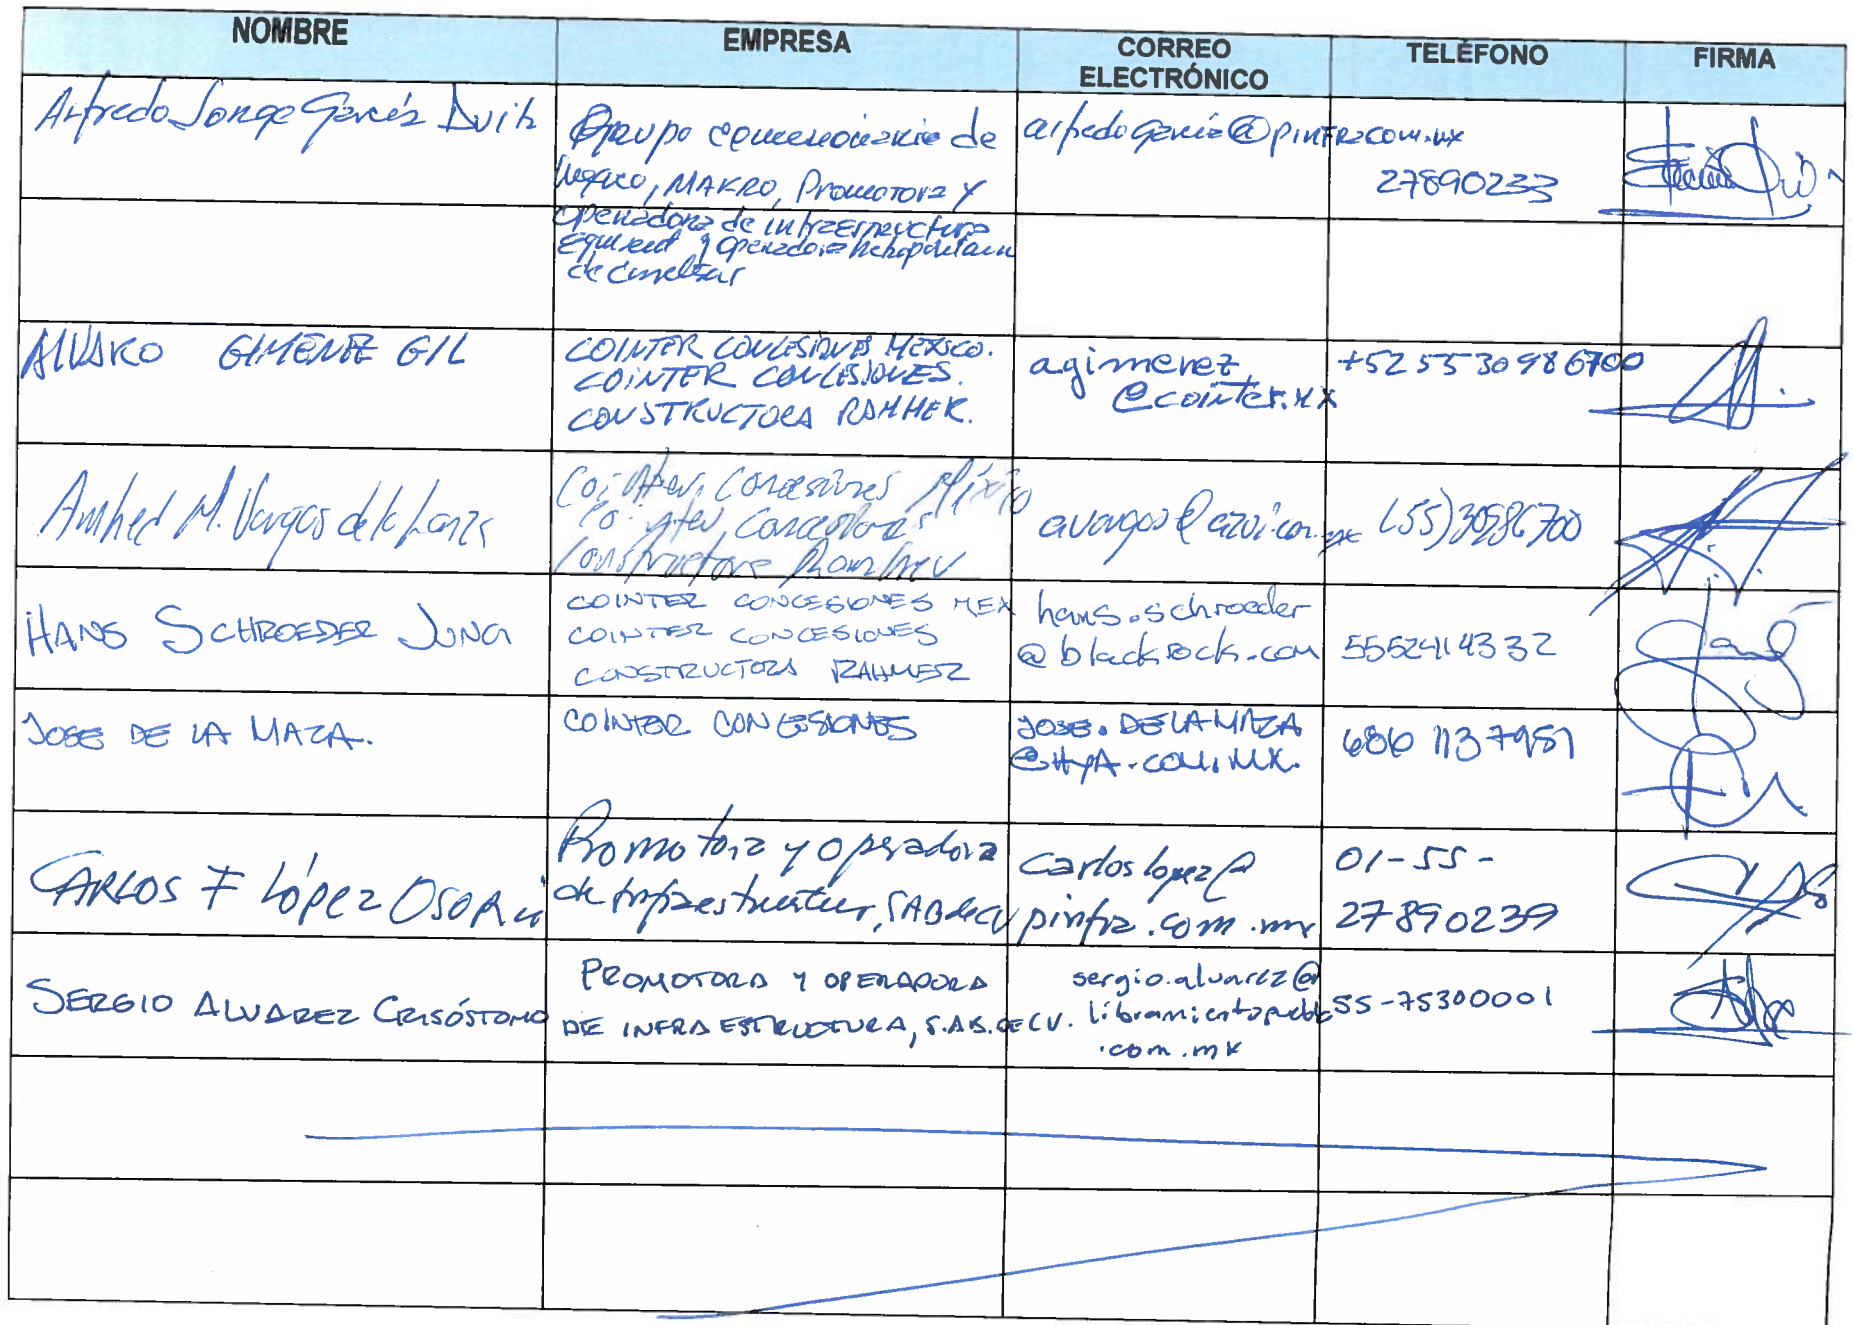 NOMBRE
EMPRESA
CORREO
ELECTRÓNICO
TELÉFONO
FIRMA
Alfredo Jorge García Avila
Grupo concesionario de
México, MAKRO, Promotora y
operadora de infraestructura
y operadora metropolitana
de
alfredo.garcia@pinfra.com.mx
27890233
ALVARO GIMENEZ GIL
COINTER CONCESIONES MEXICO.
COINTER CONCESIONES.
CONSTRUCTORA RAHMER.
agimenez
@cointer.mx
+52 55 30986700
M. Vargas de la Lanza
Cointer, Concesiones México
Cointer, Concesiones
Constructora
avargas@azvi.com.mx
(55)30986700
HANS SCHROEDER JUNG
COINTER CONCESIONES MEX
COINTER CONCESIONES
CONSTRUCTORA RAHMER
hans.schroeder
@blackrock.com
5552414332
JOSE DE LA MAZA.
COINTER CONCESIONES
JOSE.DELAMAZA
@HYA.COM.MX.
686 1137951
CARLOS F López OSORio
Promotora y Operadora
de Infraestructura, SAB de CV
carlos lopez@
pinfra.com.mx
01-55-
27890239
SERGIO ALVAREZ CRISÓSTOMO
PROMOTORA Y OPERADORA
DE INFRAESTRUCTURA, S.A.B. DE CV.
sergio.alvarez@
libramientopuebla
.com.mx
55-75300001